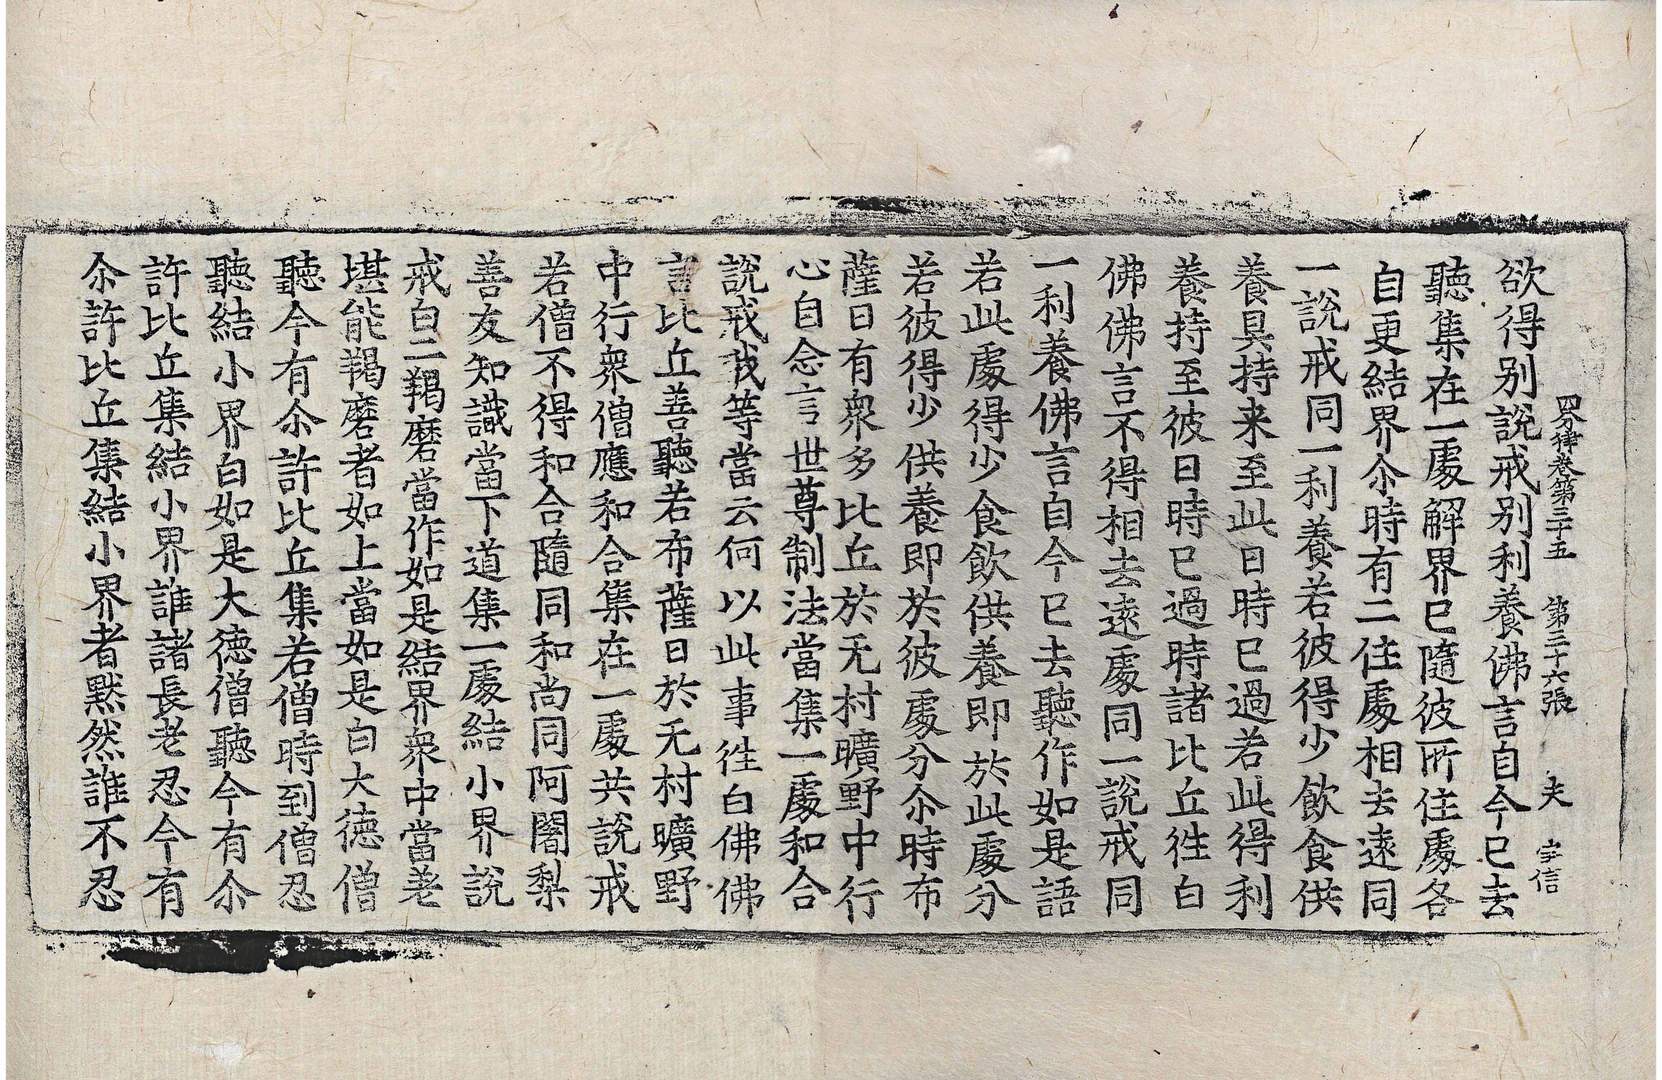 四分律卷第三十五 第三十六張 夫 宝信
欲得別說戒別利養佛言自今已去
聽集在一處解界已隨彼所住處各
自更結界尒時有二住處相去遠同
一說戒同一利養若彼得少飲食供
養具持来至此日時已過若此得利
養持至彼日時已過時諸比丘徃白
佛佛言不得相去遠處同一說戒同
一利養佛言自今已去聽作如是語
若此處得少食飲供養即於此處分
若彼得少供養即於彼處分尒時布
薩日有衆多比丘於无村曠野中行
心自念言世尊制法當集一處和合
說戒我等當云何以此事徃白佛佛
言比丘善聽若布薩日於无村曠野
中行衆僧應和合集在一處共說戒
若僧不得和合隨同和尚同阿闍梨
善友知識當下道集一處結小界說
戒白二羯磨當作如是結界衆中當差
堪能羯磨者如上當如是白大德僧
聽今有尒許比丘集若僧時到僧忍
聽結小界白如是大德僧聽今有尒
許比丘集結小界誰諸長老忍今有
尒許比丘集結小界者默然誰不忍